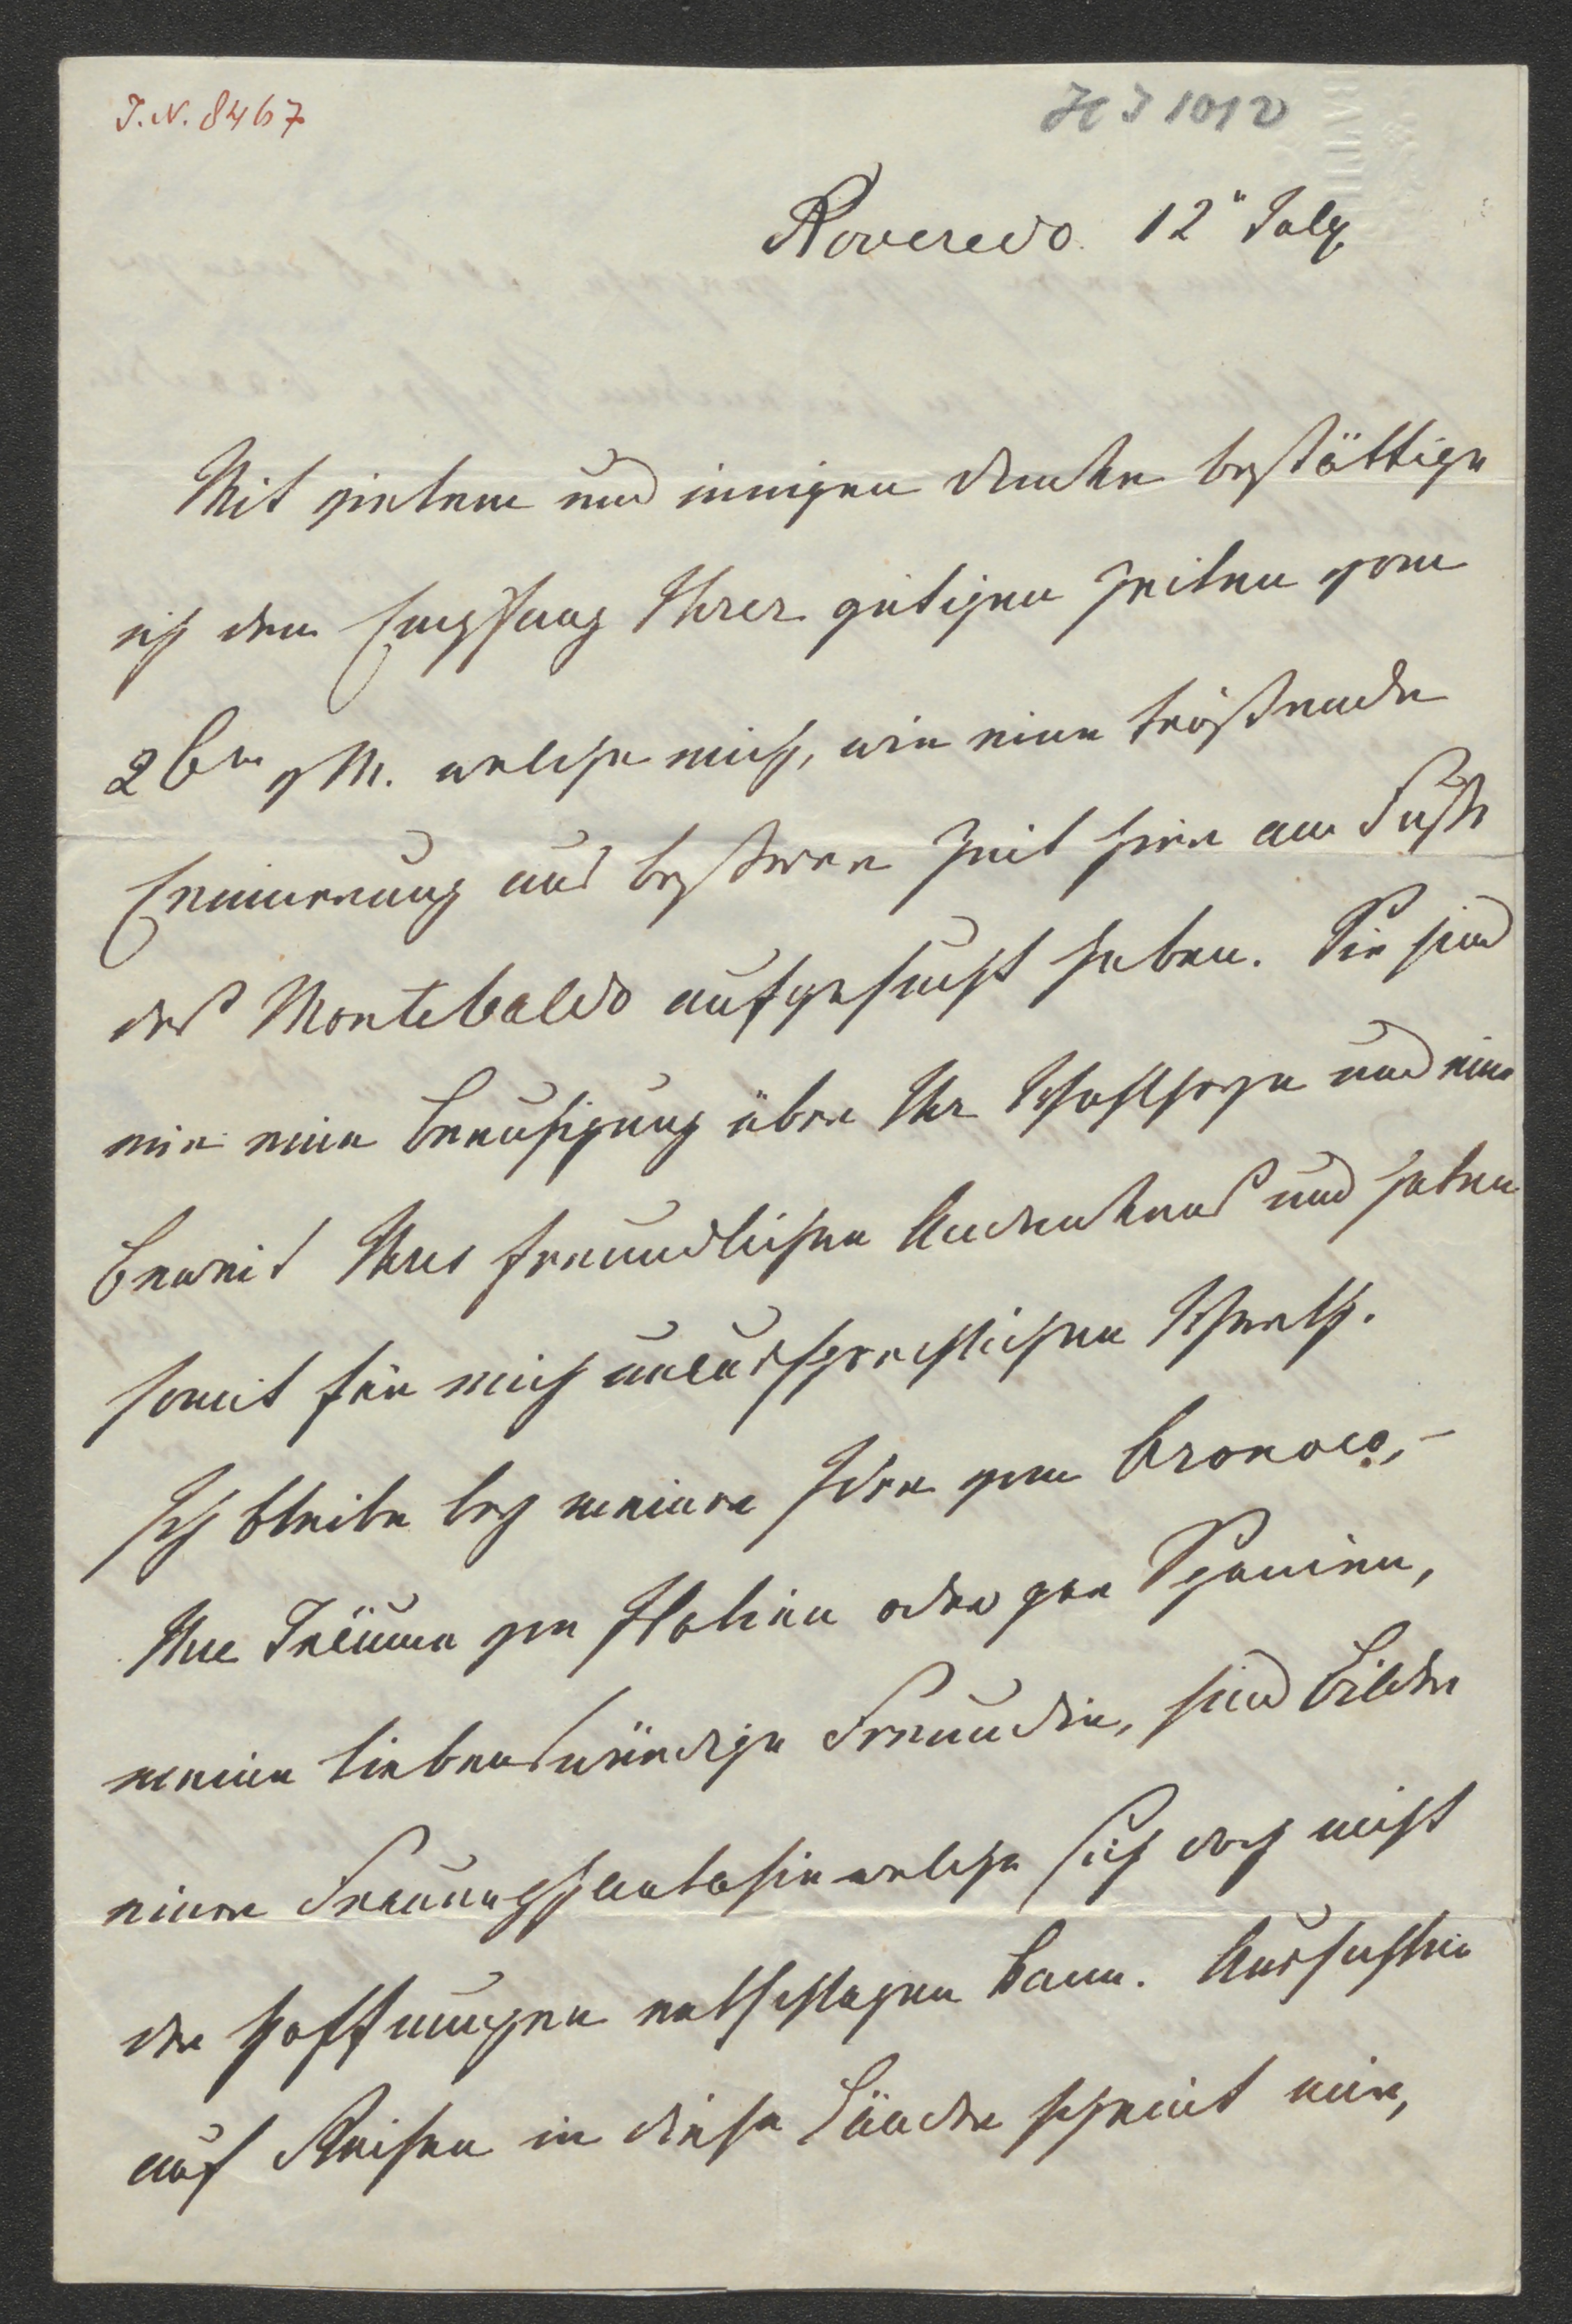 J.N. 8467
HJ 1012
Roveredo 12" July
Mit vielem und innigen Danke bestättige
ich den Empfang Ihrer gütigen Zeilen vom
26ten v M. welche mich, wie eine tröstende
Erinnerung aus besserer Zeit hier am Fuße
des Montebaldo aufgesucht haben. Sie sind
mir eine Beruhigung über Ihr Wohlseyn und eine
Beweis Ihres freundlichen Andenkens und haben
somit für mich unaussprechlichen Werth.
Ich bleibe bey meiner Idee vom
Ihre Träume von Italien oder gar Spanien,
meine liebenswürdige Freundin, sind Bilder
einer Frauenphantasie welche sich doch nicht
der Hoffnungen entschlagen kann. Aussichten
auf Reisen in diese Länder scheint mir,